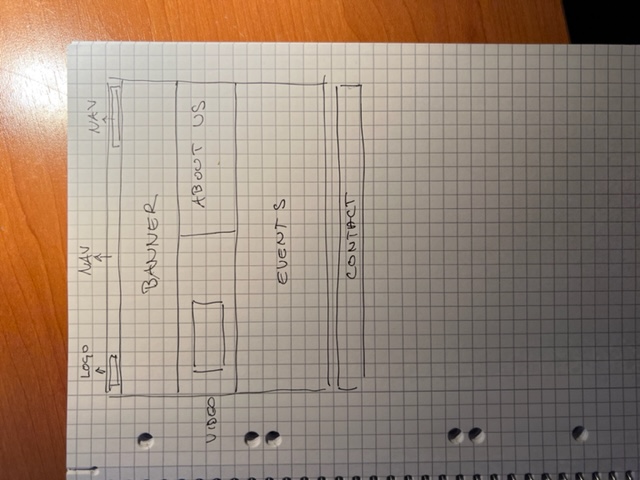 LOGO
NAV
NAV
BANNER
VIDEO
ABOUT US
EVENTS
CONTACT